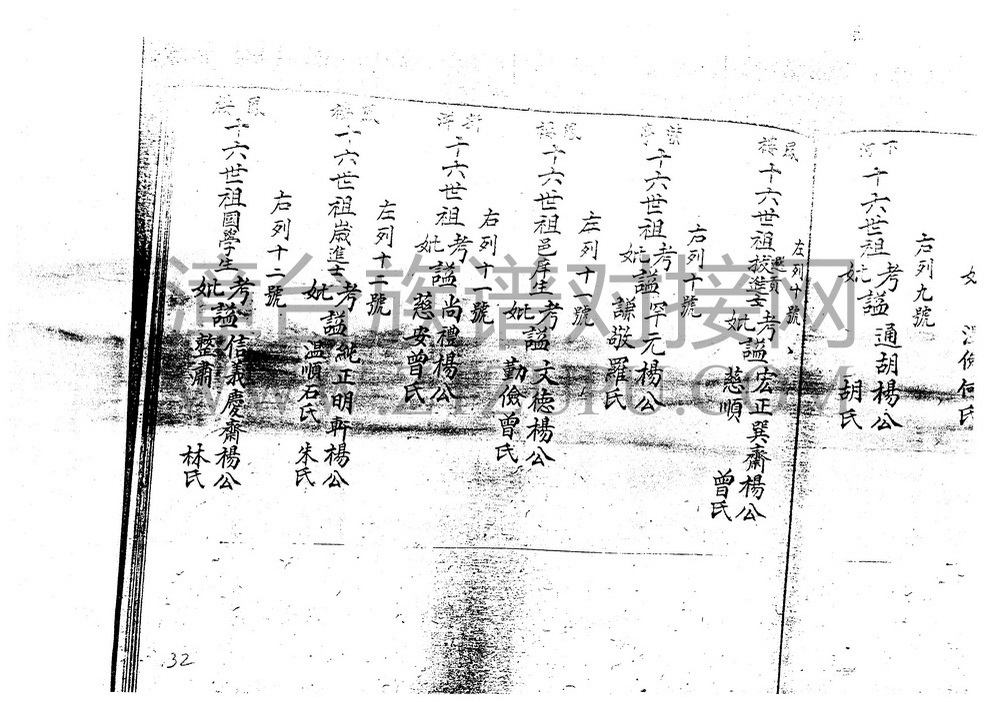 妣
氏
右列九號
下河
十六世祖考諡通胡楊公
妣 胡氏
左列十號
鳳樓
十六世祖拔選貢進士考諡宏正巽齋楊公
妣諡慈順 曾氏
右列十號
紫亭
十六世祖考諡罕元楊公
妣諡謙敬羅氏
左列十一號
鳳樓
十六世祖邑庠生考諡文德楊公
妣 勤儉曾氏
右列十一號
十六世祖考諡尚禮楊公
妣諡慈安曾氏
左列十二號
鳳樓
十六世祖歲進士考諡純正明軒楊公
妣 溫順石氏 朱氏
右列十二號
鳳樓
十六世祖國學生考諡信義慶齋楊公
妣諡整肅 林氏
32
漳台族谱对接网
WWW.ZTZUPU.COM